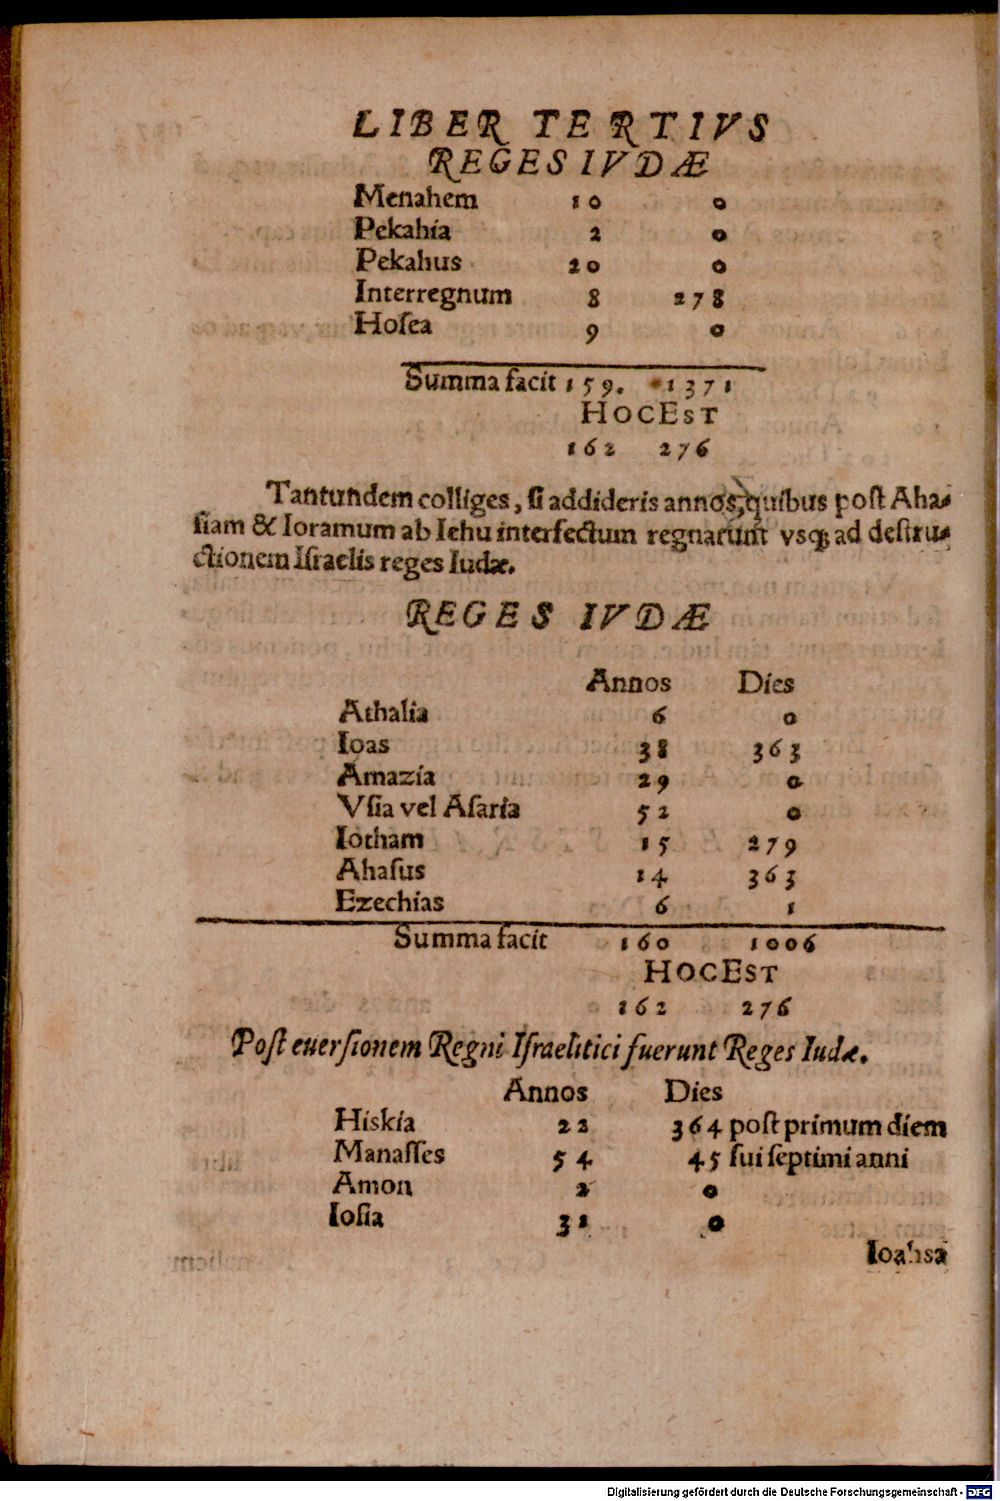 LIBER TERTIVS
REGES IVDÆ
Menahem 10 0
Pekahia 2 0
Pekahus 20 0
Interregnum 8 278
Hoſea 9 0
Summa facit 159. 1371
HOC EST
162 276
Tantundem colliges, ſi addideris annos, quibus poſt Aha-
ſiam & Ioramum ab Iehu interfectum regnarunt vsq; ad deſtru-
ctionem Iſraelis reges Iudæ.
REGES IVDÆ
Annos Dies
Athalia 6 0
Ioas 38 363
Amazia 29 0
Vſia vel Aſaria 52 0
Iotham 15 279
Ahaſus 14 363
Ezechias 6 1
Summa facit 160 1006
HOC EST
162 276
Poſt euerſionem Regni Iſraelitici fuerunt Reges Iudæ.
Annos Dies
Hiskia 22 364 poſt primum diem
Manaſſes 54 45 ſui ſeptimi anni
Amon 2 0
Ioſia 31 0
Ioahsa
Digitalisierung gefördert durch die Deutsche Forschungsgemeinschaft - DFG